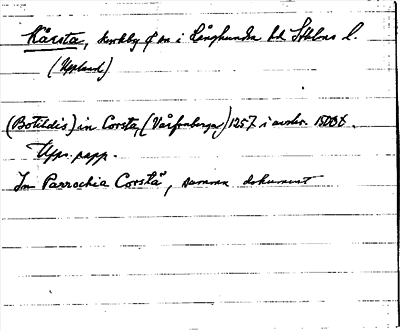 Kårsta, kyrkby o sn i Långhundra hd Sthlms l.
(Uppland)
(Botildis) in Corsta, (Vårfruberga) 1257 i avskr.
Ups. papp.
In Parrochia Corstā, samma dokument